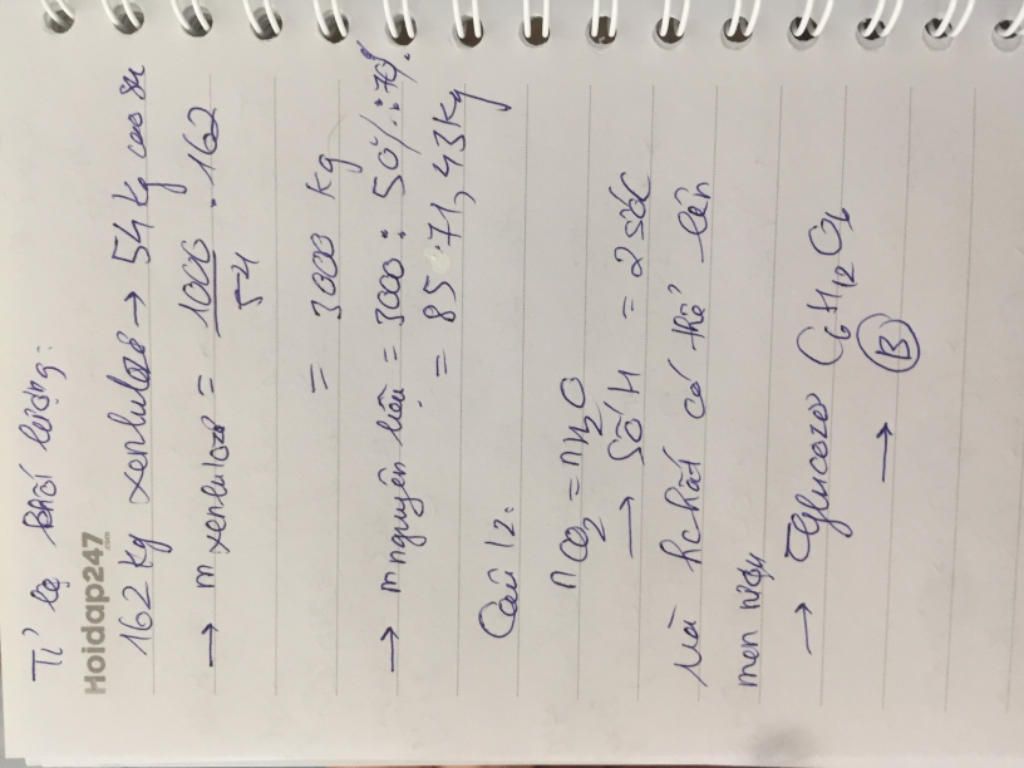 Tỉ lệ khối lượng:
Hoidap247
.com
162 kg xenlulozơ → 54 kg cao su
→ m xenlulozơ = 1000/54 . 162
= 3000 kg
→ m nguyên liệu = 3000 : 50% : 70%
= 8571,43 kg
Câu 12:
nCO2 = nH2O
→ Số H = 2 số C
Mà hchất có thể lên
men rượu
→ Glucozơ C6H12O6
→ (B)